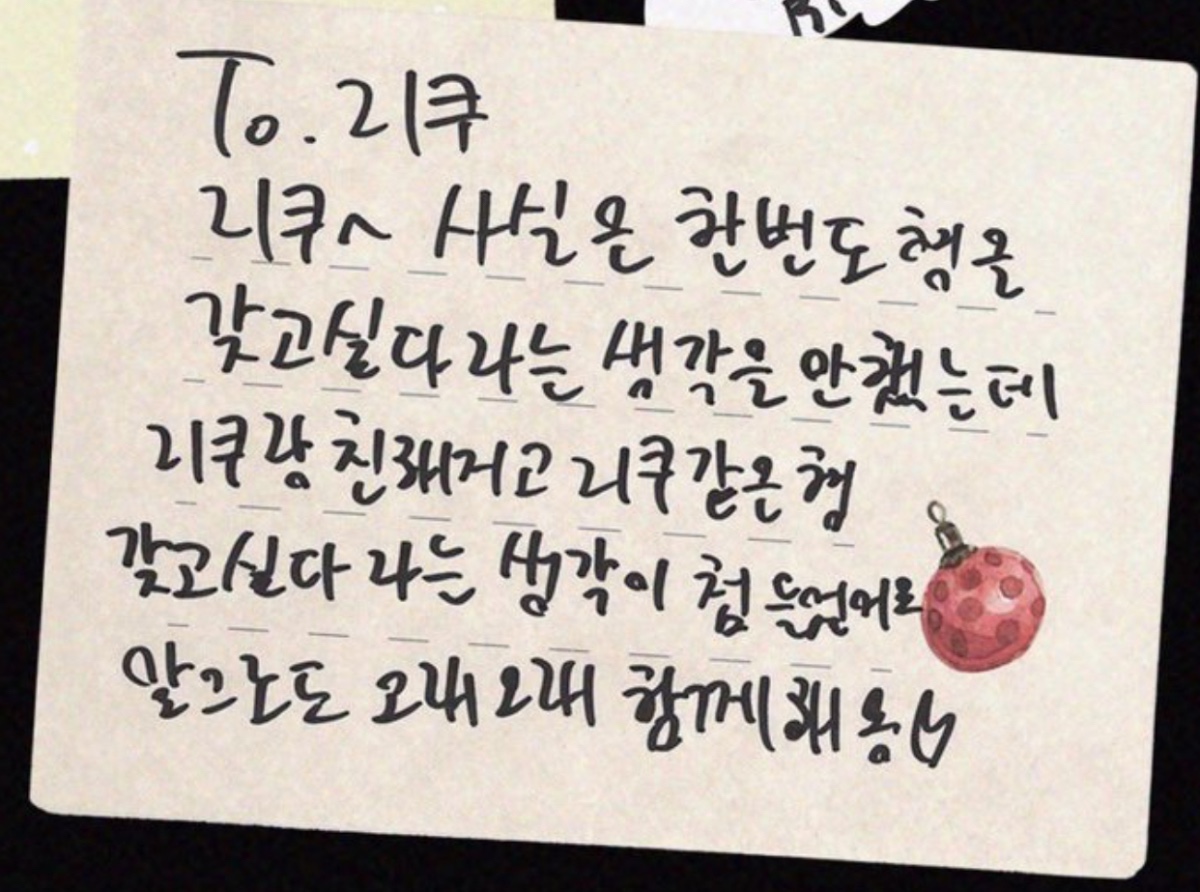 To. 리쿠
리쿠~ 사실은 한번도 형은
갖고싶다라는 생각을 안했는데
리쿠랑 친해지고 리쿠같은 형
갖고싶다라는 생각이 첨 들었어료
앞으로도 오래오래 함께해용